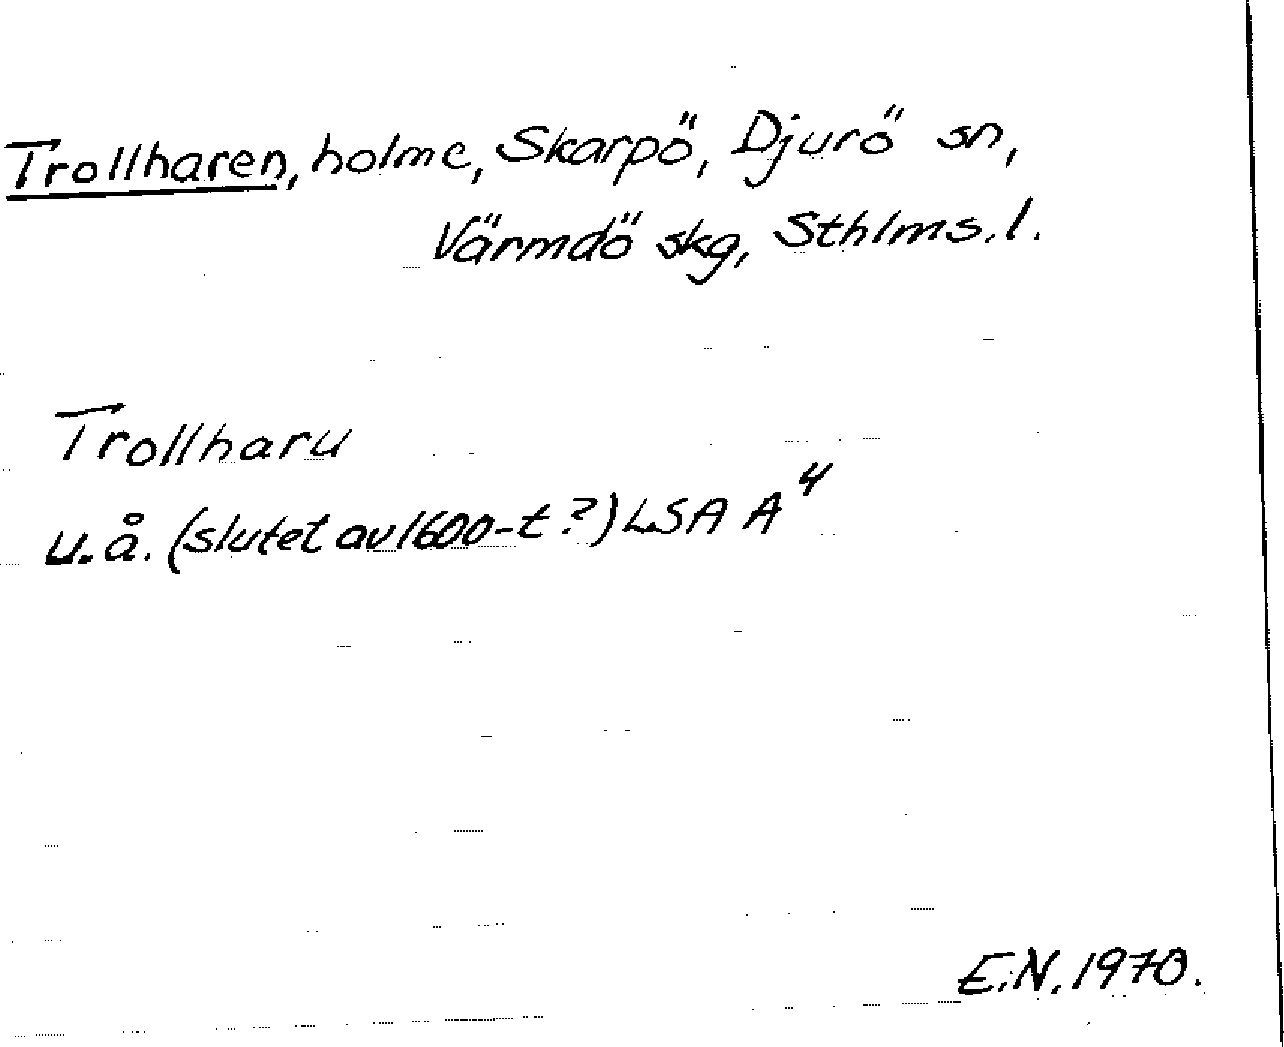 Trollharen, holme, Skarpö, Djurö sn,
Värmdö skg, Sthlms. l.
Trollharu
u.å. (slutet av 1600-t?) LSA A⁴
E.N. 1970.